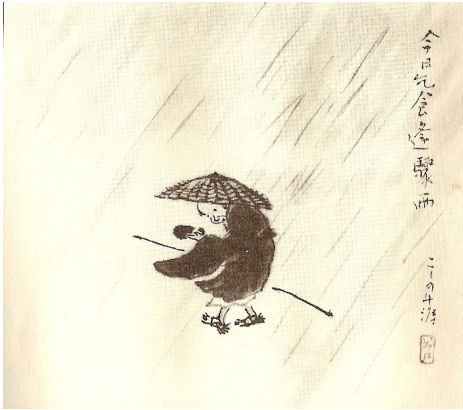 今日乞食逢驟雨
こしの千涯